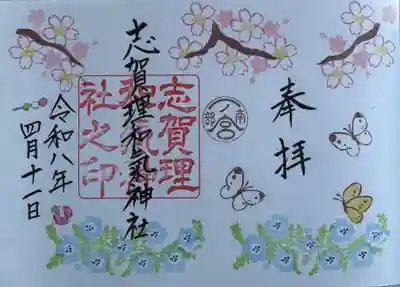 奉拝
南部一ノ宮
志賀理和氣神社
志賀理
和氣神
社之印
令和八年
四月十一日